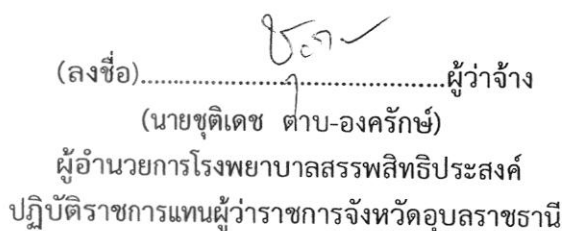 (ลงชื่อ)..........................................ผู้ว่าจ้าง
(นายชุติเดช ตาบ-องครักษ์)
ผู้อำนวยการโรงพยาบาลสรรพสิทธิประสงค์
ปฏิบัติราชการแทนผู้ว่าราชการจังหวัดอุบลราชธานี